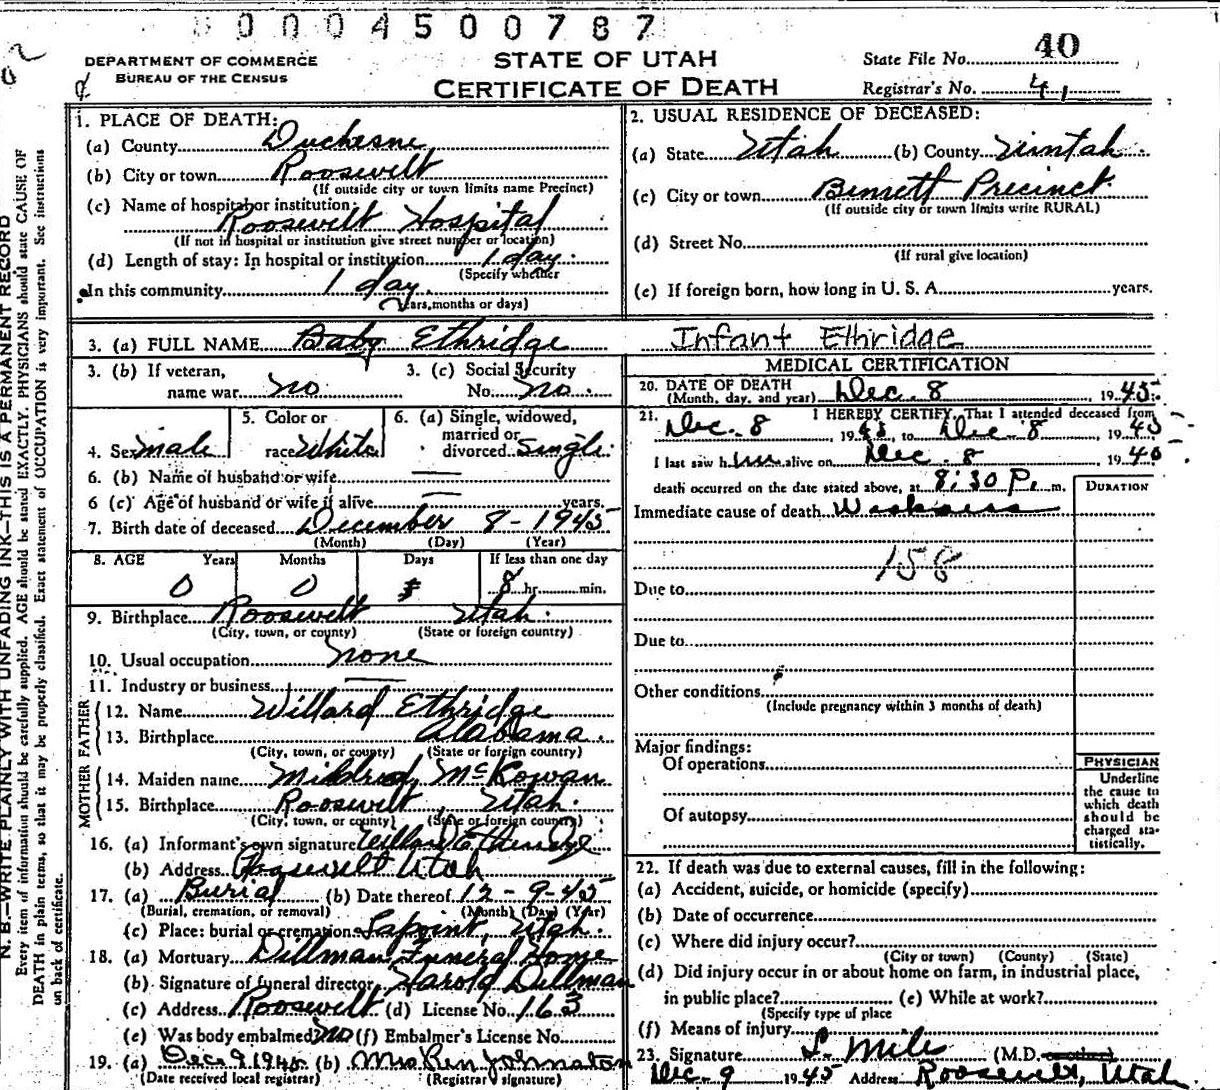 0004500787
STATE OF UTAH
CERTIFICATE OF DEATH
DEPARTMENT OF COMMERCE
BUREAU OF THE CENSUS
State File No. 40
Registrar's No. 41
N. B.—WRITE PLAINLY WITH UNFADING INK—THIS IS A PERMANENT RECORD
Every item of information should be carefully supplied. AGE should be stated EXACTLY. PHYSICIANS should state CAUSE OF
DEATH in plain terms, so that it may be properly classified. Exact statement of OCCUPATION is very important. See instructions
on back of certificate.
1. PLACE OF DEATH:
(a) County Duchesne
(b) City or town Roosevelt
(If outside city or town limits name Precinct)
(c) Name of hospital or institution:
Roosevelt Hospital
(If not in hospital or institution give street number or location)
(d) Length of stay: In hospital or institution 1 day.
(Specify whether
In this community 1 day.
years, months or days)
2. USUAL RESIDENCE OF DECEASED:
(a) State Utah (b) County Uintah
(c) City or town Bennett Precinct
(If outside city or town limits write RURAL)
(d) Street No.
(If rural give location)
(e) If foreign born, how long in U. S. A. years.
3. (a) FULL NAME Baby Ethridge Infant Ethridge
3. (b) If veteran, name war no
3. (c) Social Security No. no.
4. Sex male
5. Color or race White
6. (a) Single, widowed, married or divorced Single.
6. (b) Name of husband or wife —
6 (c) Age of husband or wife if alive — years.
7. Birth date of deceased December 8 - 1945
(Month) (Day) (Year)
8. AGE Years Months Days If less than one day
0 0 8 hr. min.
9. Birthplace Roosevelt Utah.
(City, town, or county) (State or foreign country)
10. Usual occupation none
11. Industry or business —
FATHER
12. Name Willard Ethridge
13. Birthplace Alabama.
(City, town, or county) (State or foreign country)
MOTHER
14. Maiden name Mildred McKowan
15. Birthplace Roosevelt, Utah.
(City, town, or county) (State or foreign country)
16. (a) Informant's own signature Willard Etheredge
(b) Address Roosevelt Utah
17. (a) Burial (b) Date thereof 12-9-45
(Burial, cremation, or removal) (Month) (Day) (Year)
(c) Place: burial or cremation Lapoint, Utah.
18. (a) Mortuary Dillman Funeral Home
(b) Signature of funeral director Harold Dillman
(c) Address Roosevelt (d) License No. 163
(e) Was body embalmed? no (f) Embalmer's License No.
19. (a) Dec 9 1945 (b) Mrs Ken Johnston
(Date received local registrar) (Registrar's signature)
MEDICAL CERTIFICATION
20. DATE OF DEATH
(Month, day, and year) Dec. 8, 1945.
21. I HEREBY CERTIFY, That I attended deceased from
Dec. 8, 1945, to Dec. 8 1945
I last saw him alive on Dec. 8 1945
death occurred on the date stated above, at 8:30 P. m.
DURATION
Immediate cause of death Weakness
158
Due to
Due to
Other conditions
(Include pregnancy within 3 months of death)
Major findings:
Of operations
Of autopsy
PHYSICIAN
Underline
the cause to
which death
should be
charged sta-
tistically.
22. If death was due to external causes, fill in the following:
(a) Accident, suicide, or homicide (specify)
(b) Date of occurrence
(c) Where did injury occur?
(City or town) (County) (State)
(d) Did injury occur in or about home on farm, in industrial place,
in public place? (e) While at work?
(Specify type of place
(f) Means of injury
23. Signature Miles (M.D.
Dec. 9 1945 Address Roosevelt, Utah.